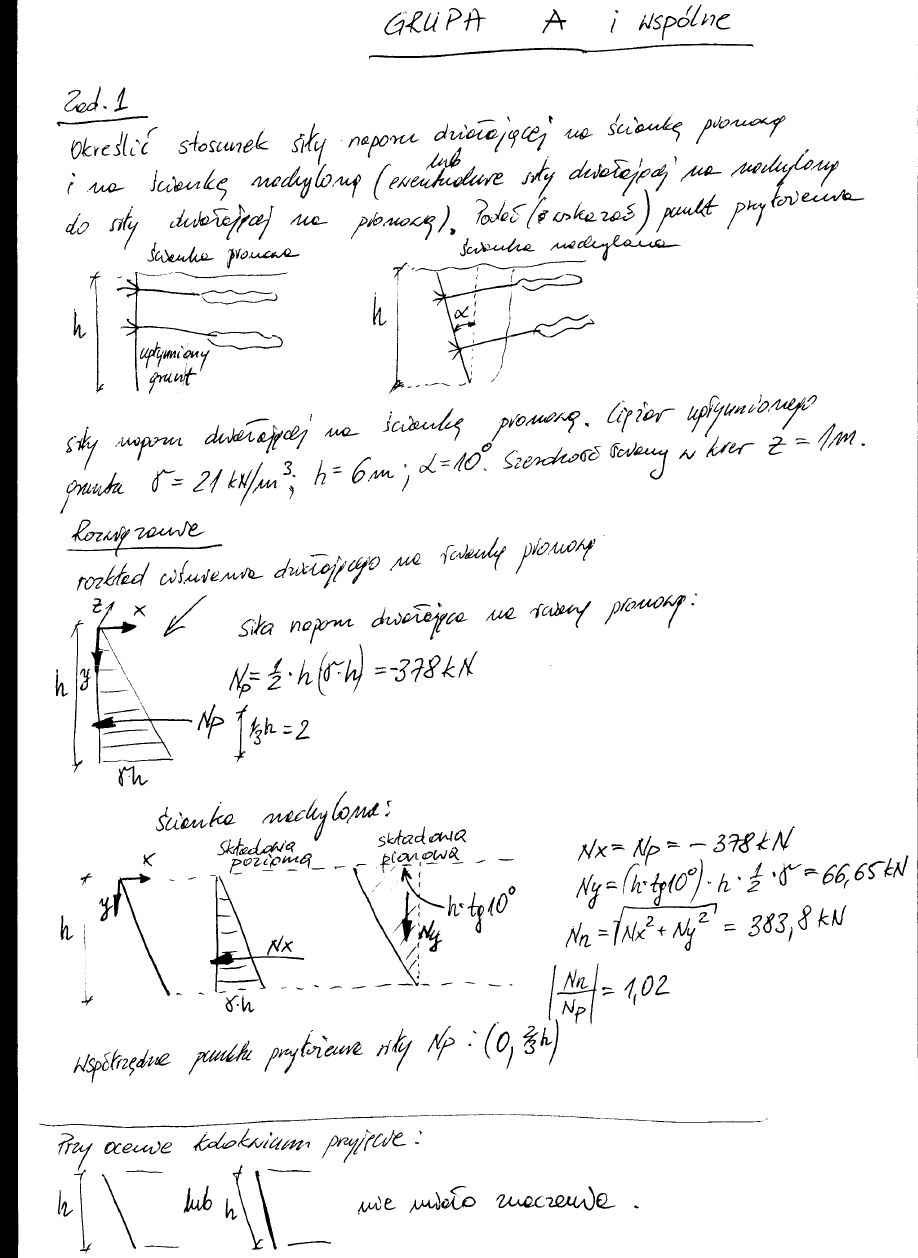 GRUPA A i wspólne
Zad. 1
Określić stosunek siły naporu działającej na ściankę pionową
lub
i na ściankę nachyloną (ewentualnie siły działającej na nachyloną
do siły działającej na pionową). Podać (wskazać) punkt przyłożenia
ścianka pionowa
ścianka nachylona
h
upłynniony
grunt
h
α
siły naporu działającej na ściankę pionową. Ciężar upłynnionego
gruntu γ = 21 kN/m³; h = 6m; α = 10°. Szerokość ściany w kier z = 1m.
Rozwiązanie
rozkład ciśnienia działającego na ściankę pionową
z x
siła naporu działająca na ścianę pionową:
h y
Np = 1/2 · h (γ·h) = -378 kN
Np 1/3 h = 2
γ·h
ścianka nachylona:
składowa
pozioma
składowa
pionowa
x
y
h
Nx
γ·h
h·tg10°
Ny
Nx = Np = - 378 kN
Ny = (h·tg10°) · h · 1/2 · γ = 66,65 kN
Nn = √(Nx² + Ny²) = 383,8 kN
|Nn/Np| = 1,02
współrzędne punktu przyłożenia siły Np : (0, 2/3 h)
Przy ocenie kolokwium przyjęcie :
h lub h nie miało znaczenia .